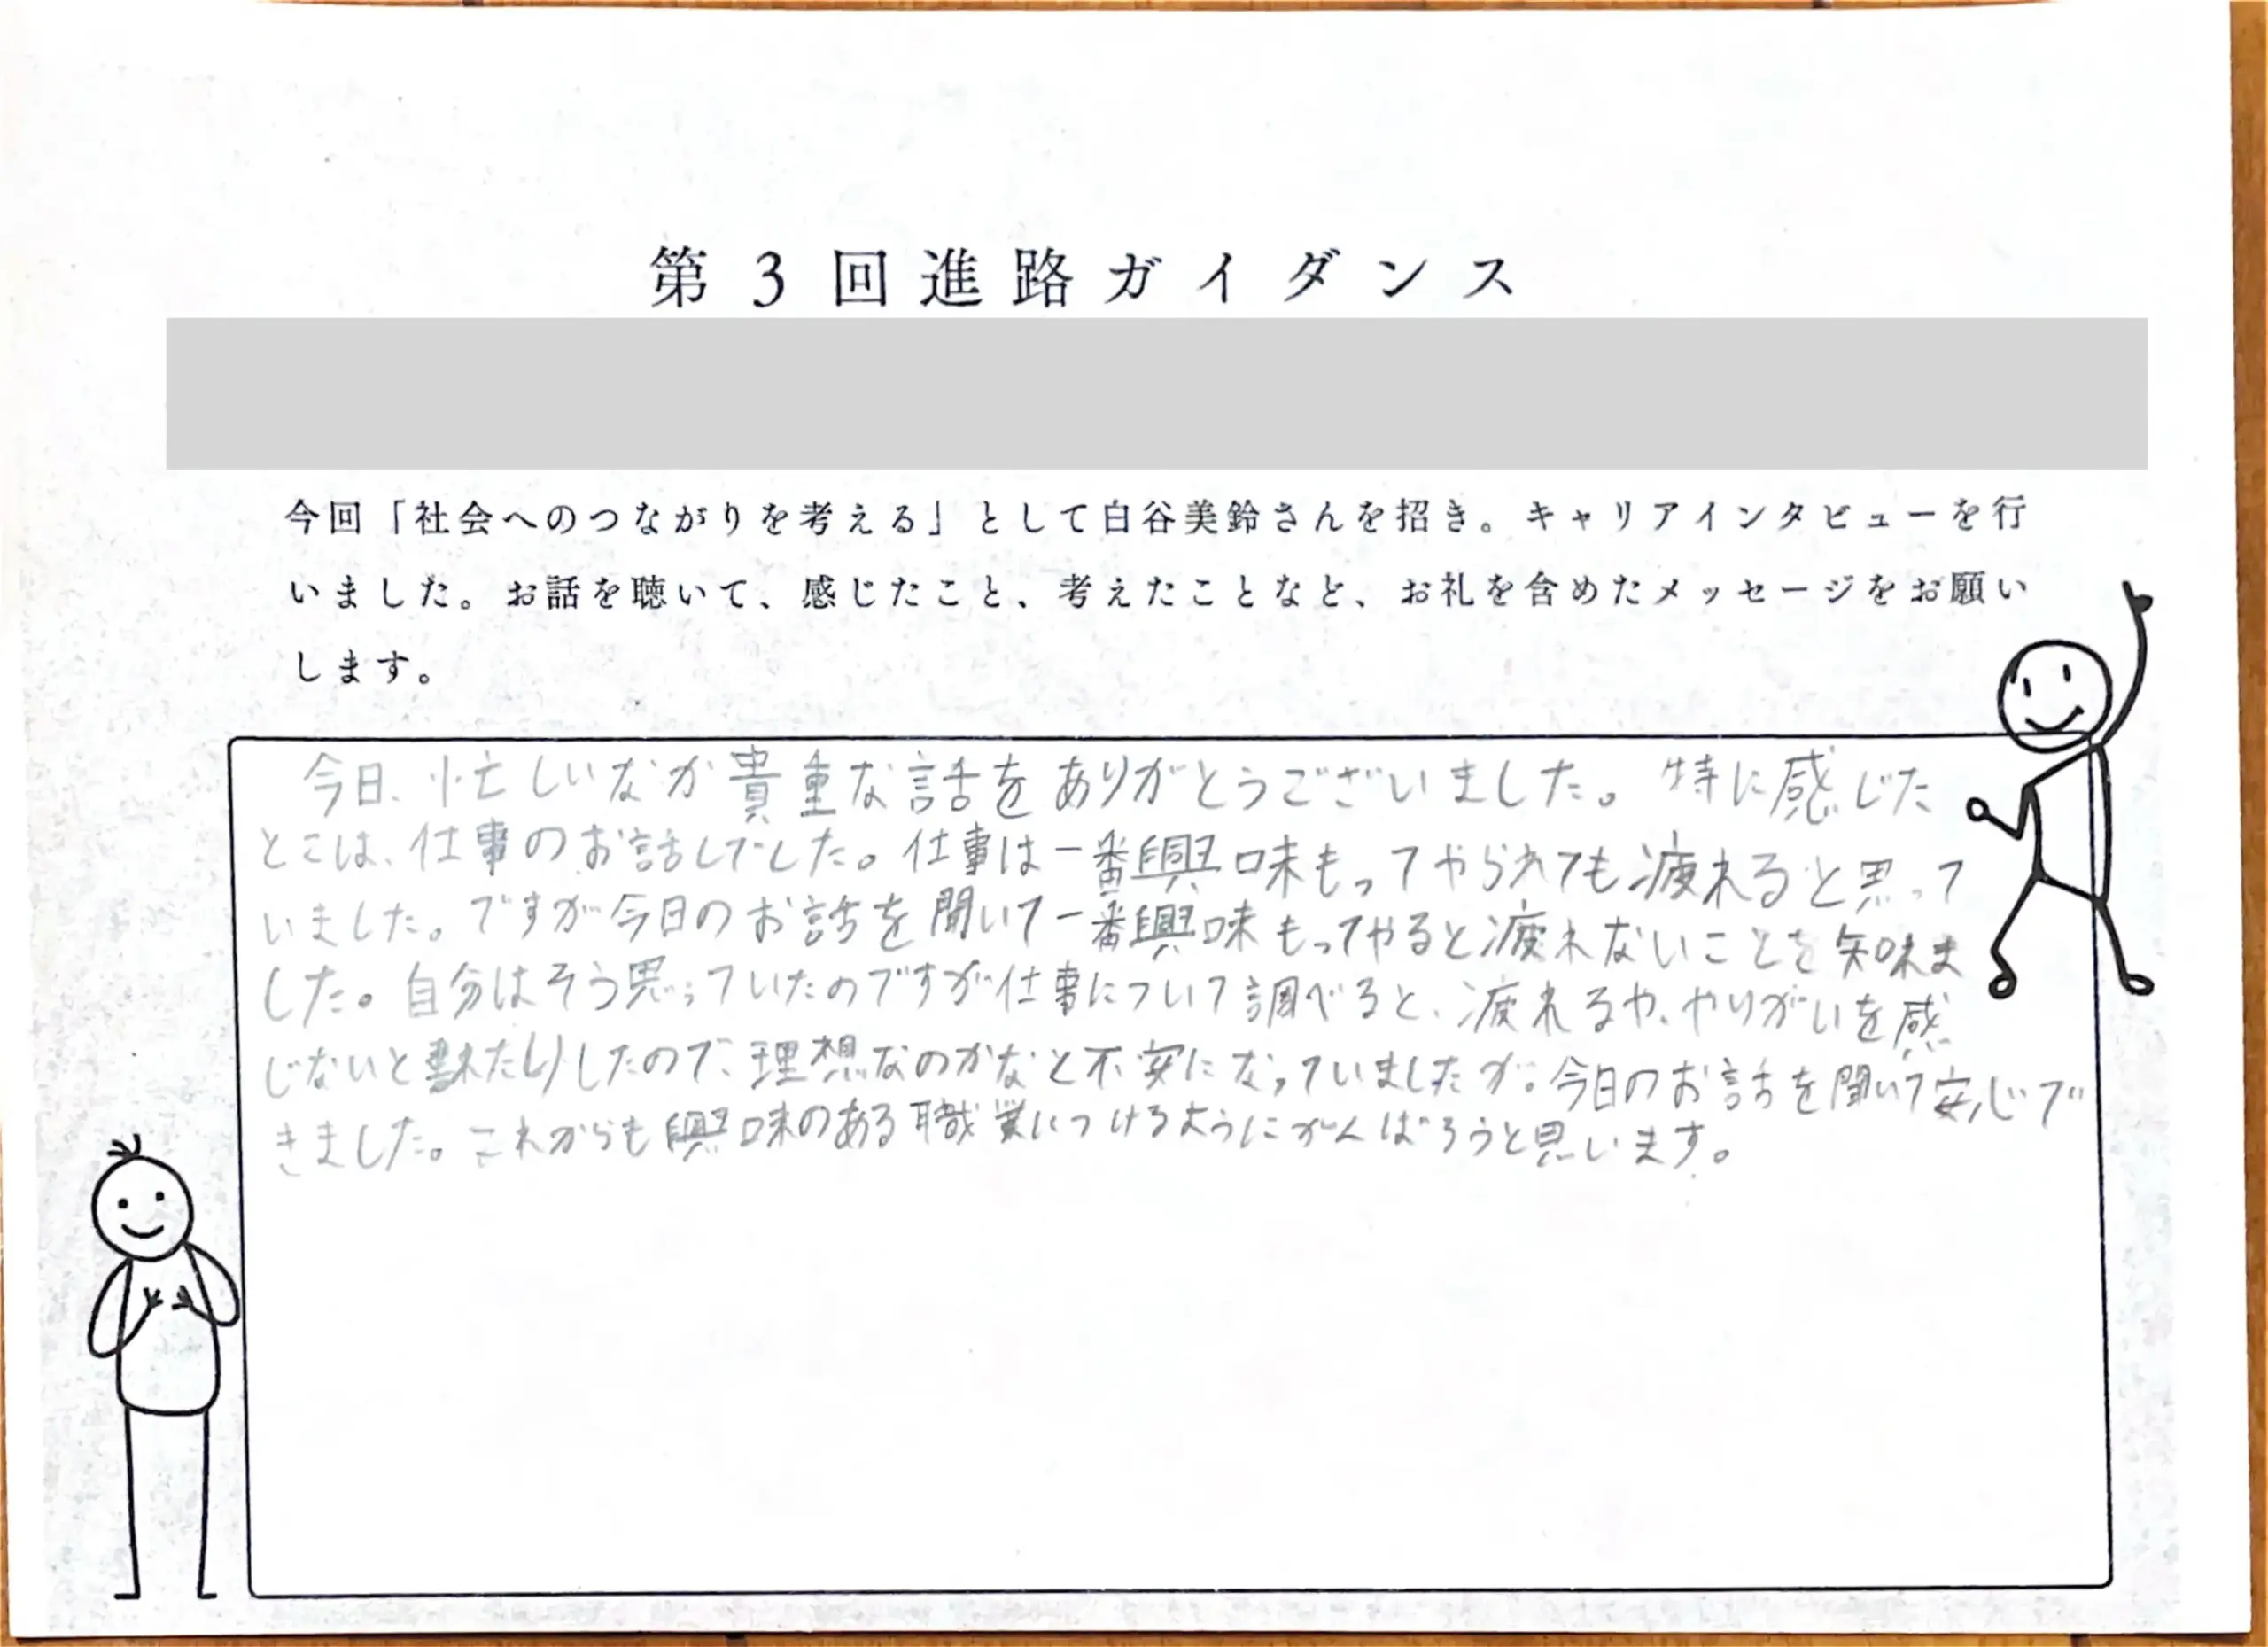 第3回進路ガイダンス
今回「社会へのつながりを考える」として白谷美鈴さんを招き。キャリアインタビューを行
いました。お話を聴いて、感じたこと、考えたことなど、お礼を含めたメッセージをお願い
します。
今日、忙しいなか貴重な話をありがとうございました。特に感じた
とこは、仕事のお話しでした。仕事は一番興味もってやられても疲れると思って
いました。ですが今日のお話を聞いて一番興味もってやると疲れないことを知味ま
した。自分はそう思っていたのですが仕事について調べると、疲れるや、やりがいを感
じないと たりしたので、理想なのかなと不安になっていましたが。今日のお話を聞いて安心で
きました。これからも興味のある職業につけるようにがんばろうと思います。